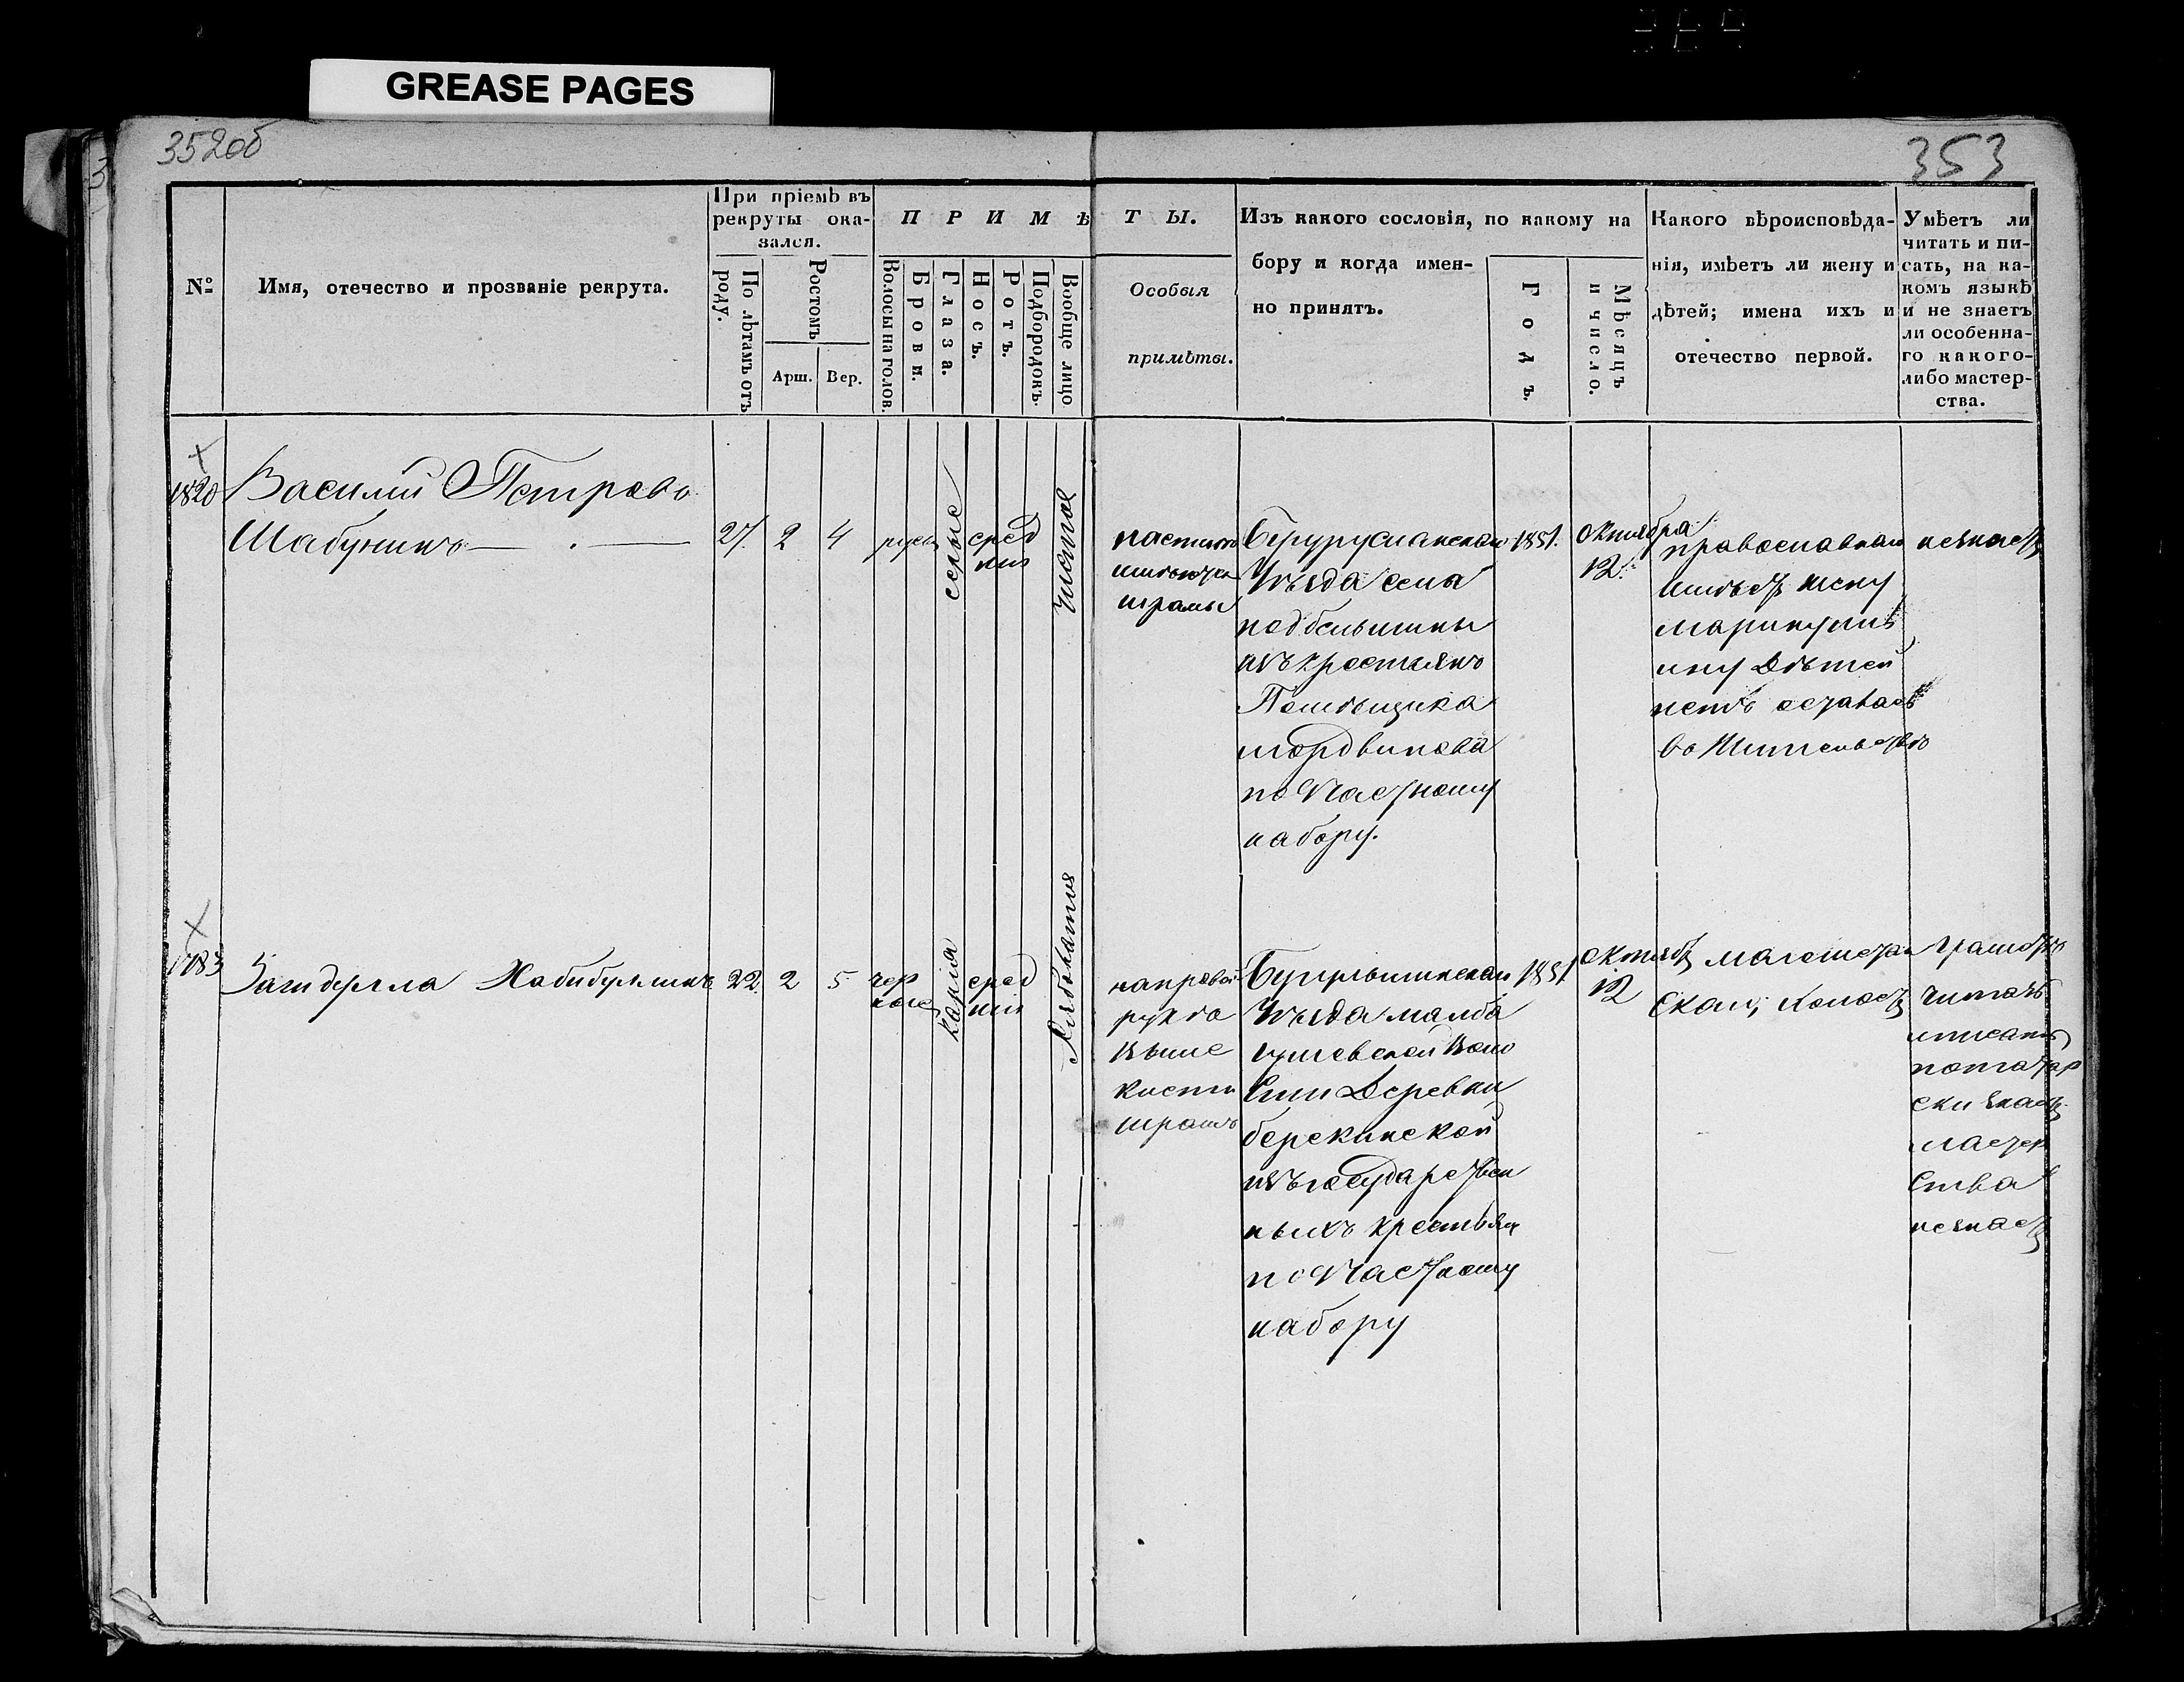 GREASE PAGES
352об
353
№
Имя, отечество и прозваніе рекрута.
При пріемѣ въ
рекруты ока-
зался.
По лѣтамъ отъ
роду.
Ростомъ
Арш.
Вер.
ПРИМѢТЫ.
Волосы на голов.
Брови.
Глаза.
Носъ.
Ротъ.
Подбородокъ.
Вообще лицо
Особыя
примѣты.
Изъ какого сословія, по какому на
бору и когда имен-
но принятъ.
Годъ.
Мѣсяцъ
и число.
Какого вѣроисповѣда-
нія, имѣетъ ли жену и
дѣтей; имена ихъ и
отечество первой.
Умѣетъ ли
читать и пи-
сать, на ка-
комъ языкѣ
и не знаетъ
ли особенна-
го какого-
либо мастер-
ства.
1820
Василій Петровъ
Шабунинъ
27.
2
4
русы
серые
сред
нія
чистое
налѣвой
шрамы
Бугурусланскаго
Уѣзда села
подбельшины
изъ крестьянъ
Помѣщика
мордвинова
по Частному
набору.
1851.
октября
12.
православнаго
имѣетъ жену
дѣтей
нетъ осталась
во Жительствѣ
незнаетъ
1783
Хабибуллинъ
22.
2
5
чер
ные
карія
сред
нія
Рябоватое
направой
рукѣ
выше
кисти
шрамъ
Бугульминскаго
Уѣзда
Воло
сти Деревни
берекинской
изъ государствен
ныхъ крестьян
по Частному
набору
1851
октябр
12
магометан
скаго, холостъ
грамотѣ
читать
иписать
потатар
ски знаетъ
мастер
ства
незнаетъ